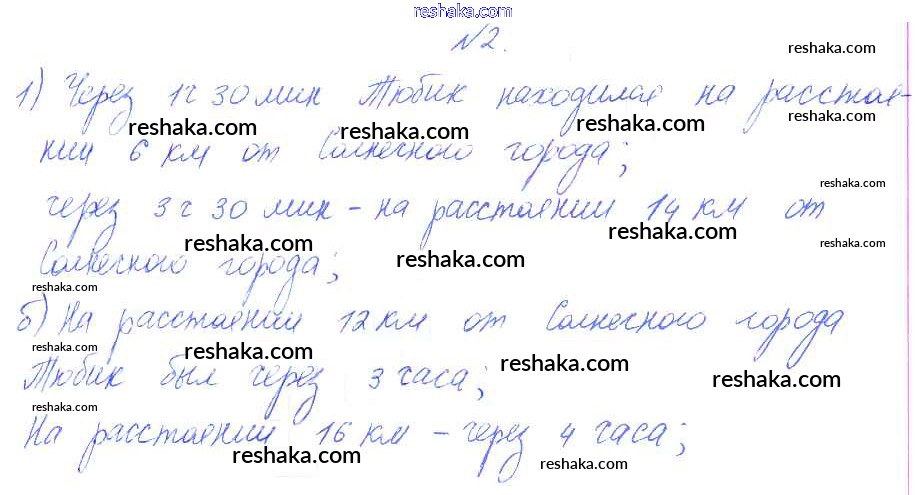 reshaka.com
№2.
reshaka.com
1) Через 1ч 30 мин Тюбик находился на расстоя-
reshaka.com
reshaka.com reshaka.com reshaka.com
нии 6 км от Солнечного города;
reshaka.com
через 3 ч 30 мин - на расстоянии 14 км от
reshaka.com reshaka.com reshaka.com
Солнечного города;
reshaka.com
reshaka.com
б) На расстоянии 12 км от Солнечного города
reshaka.com reshaka.com reshaka.com
Тюбик был через 3 часа;
reshaka.com
reshaka.com
На расстоянии 16 км - через 4 часа;
reshaka.com reshaka.com